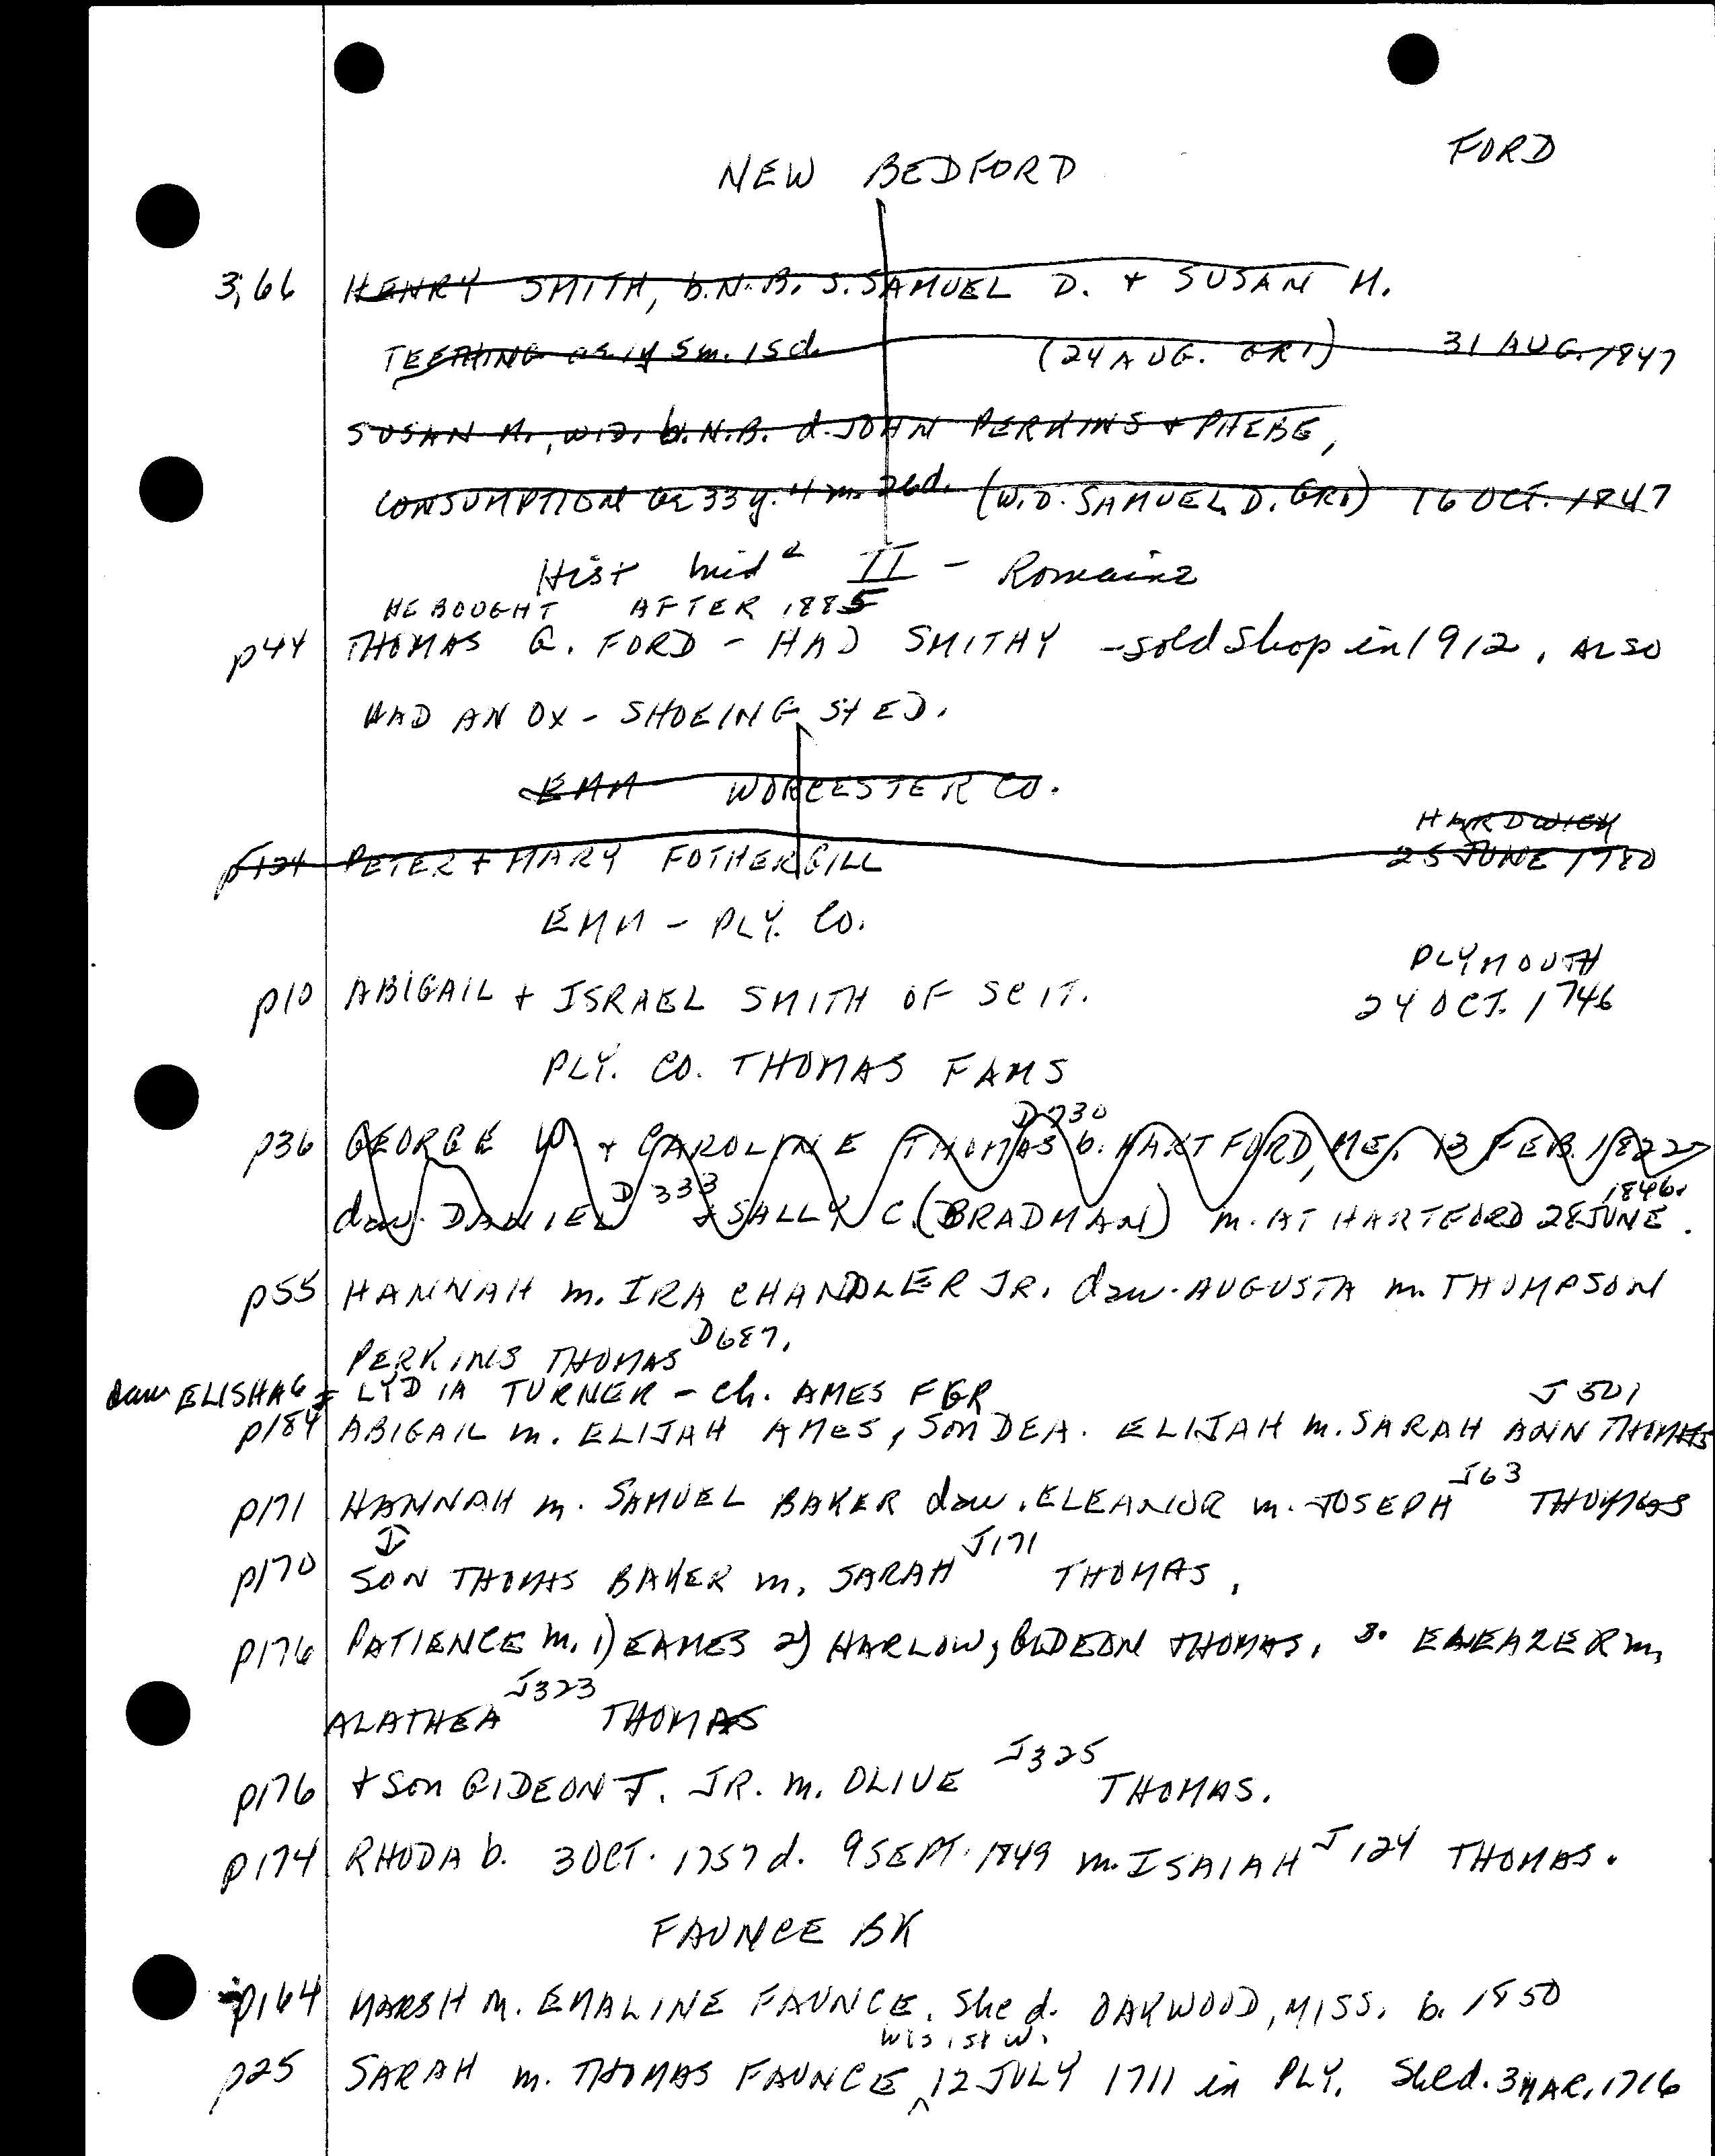 FORD
NEW BEDFORD
3,66 HENRY SMITH, b.N.B. S. SAMUEL D. + SUSAN M.
TEETHING ae 1y 5m. 15d. (24 AUG. GR1) 31 AUG. 1847
SUSAN M., WID. b.N.B. d. JOHN PERKINS + PHEBE,
CONSUMPTION ae 33y. 4m. 26d. (W.D. SAMUEL D. GR1) 16 OCT. 1847
Hist II - Romaine
HE BOUGHT AFTER 1885
p44 THOMAS G. FORD - HAD SMITHY - sold Shop in 1912, ALSO
HAD AN OX - SHOEING SHED.
EMM WORCESTER CO.
HARDWICK
p124 PETER + MARY FOTHERGILL 25 JUNE 1780
EMM - PLY. CO.
PLYMOUTH
p10 ABIGAIL + ISRAEL SMITH OF SCIT. 24 OCT. 1746
PLY. CO. THOMAS FAMS
D730
p36 GEORGE W. + CAROLINE THOMAS b. HARTFORD, ME. 13 FEB. 1822
D 333 1846.
daw. DANIEL + SALLY C. (BRADMAN) m. AT HARTFORD 28 JUNE.
p55 HANNAH m. IRA CHANDLER JR. daw. AUGUSTA m. THOMPSON
PERKINS THOMAS D687.
daw ELISHA G + LYDIA TURNER - ch. AMES FGR J 501
p184 ABIGAIL m. ELIJAH AMES, SON DEA. ELIJAH m. SARAH ANN THOMAS
p171 HANNAH m. SAMUEL BAKER daw. ELEANOR m. JOSEPH J63 THOMAS
p170 SON THOMAS BAKER m. SARAH J171 THOMAS.
p176 PATIENCE m. 1) EAMES 2) HARLOW, GIDEON THOMAS. S. ELEAZER m.
ALATHEA J323 THOMAS
p176 + SON GIDEON T. JR. m. OLIVE J325 THOMAS.
p174 RHODA b. 3 OCT. 1757 d. 9 SEPT. 1849 m. ISAIAH J 124 THOMAS.
FAUNCE BK
p164 MARSH M. EMALINE FAUNCE. She d. OAKWOOD, MISS. b. 1850
WIS 1st W.
p25 SARAH m. THOMAS FAUNCE ^ 12 JULY 1711 in PLY. She d. 3 MAR. 1716